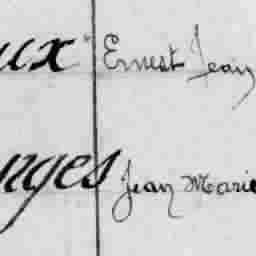 ux Ernest Jean
nges Jean Marie